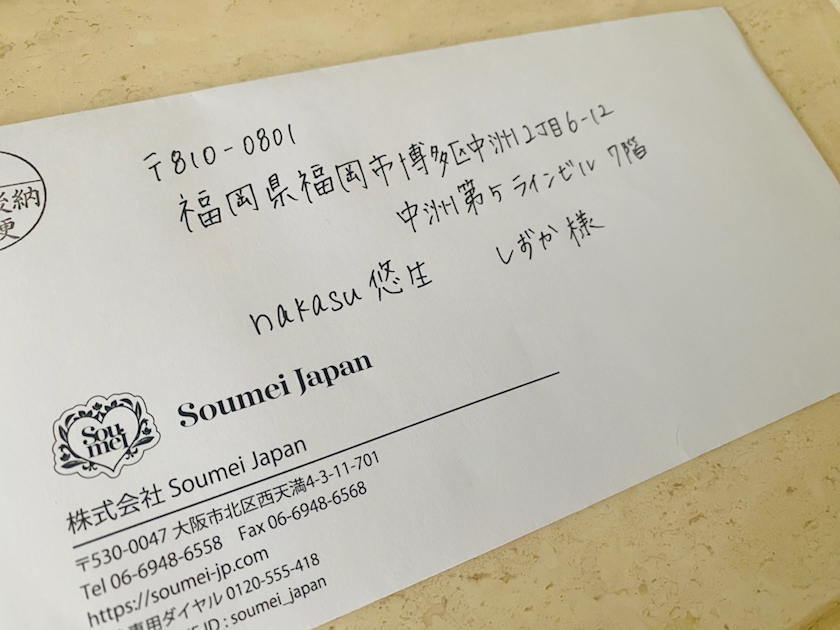 〒810-0801
福岡県福岡市博多区中洲2丁目6-12
中洲第5ラインビル 7階
nakasu 悠生 しずか 様
後納
便
Sou
mei
Soumei Japan
株式会社 Soumei Japan
〒530-0047 大阪市北区西天満4-3-11-701
Tel 06-6948-6558 Fax 06-6948-6568
https://soumei-jp.com
専用ダイヤル 0120-555-418
ID : soumei_japan